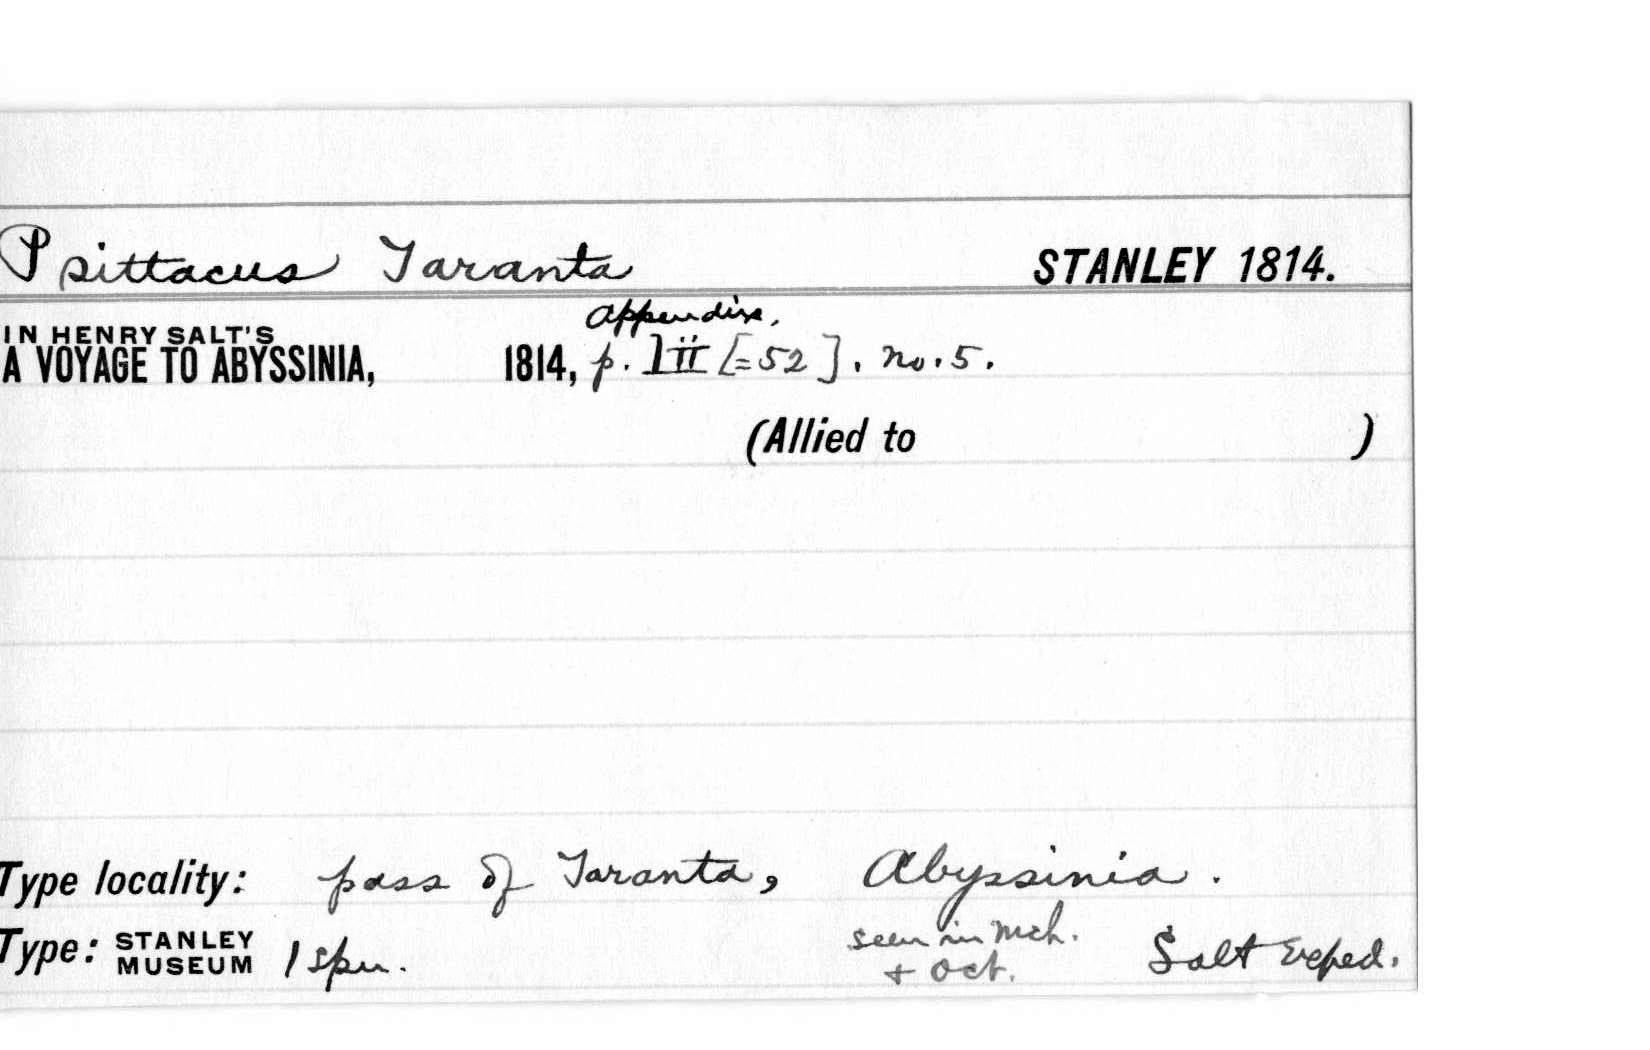 Psittacus Taranta STANLEY 1814.
appendix,
IN HENRY SALT'S
A VOYAGE TO ABYSSINIA, 1814, p. lii [=52]. no. 5.
(Allied to )
Type locality: pass of Taranta, Abyssinia.
Type: STANLEY MUSEUM 1 spn. seen in Mch. + Oct. Salt Exped.